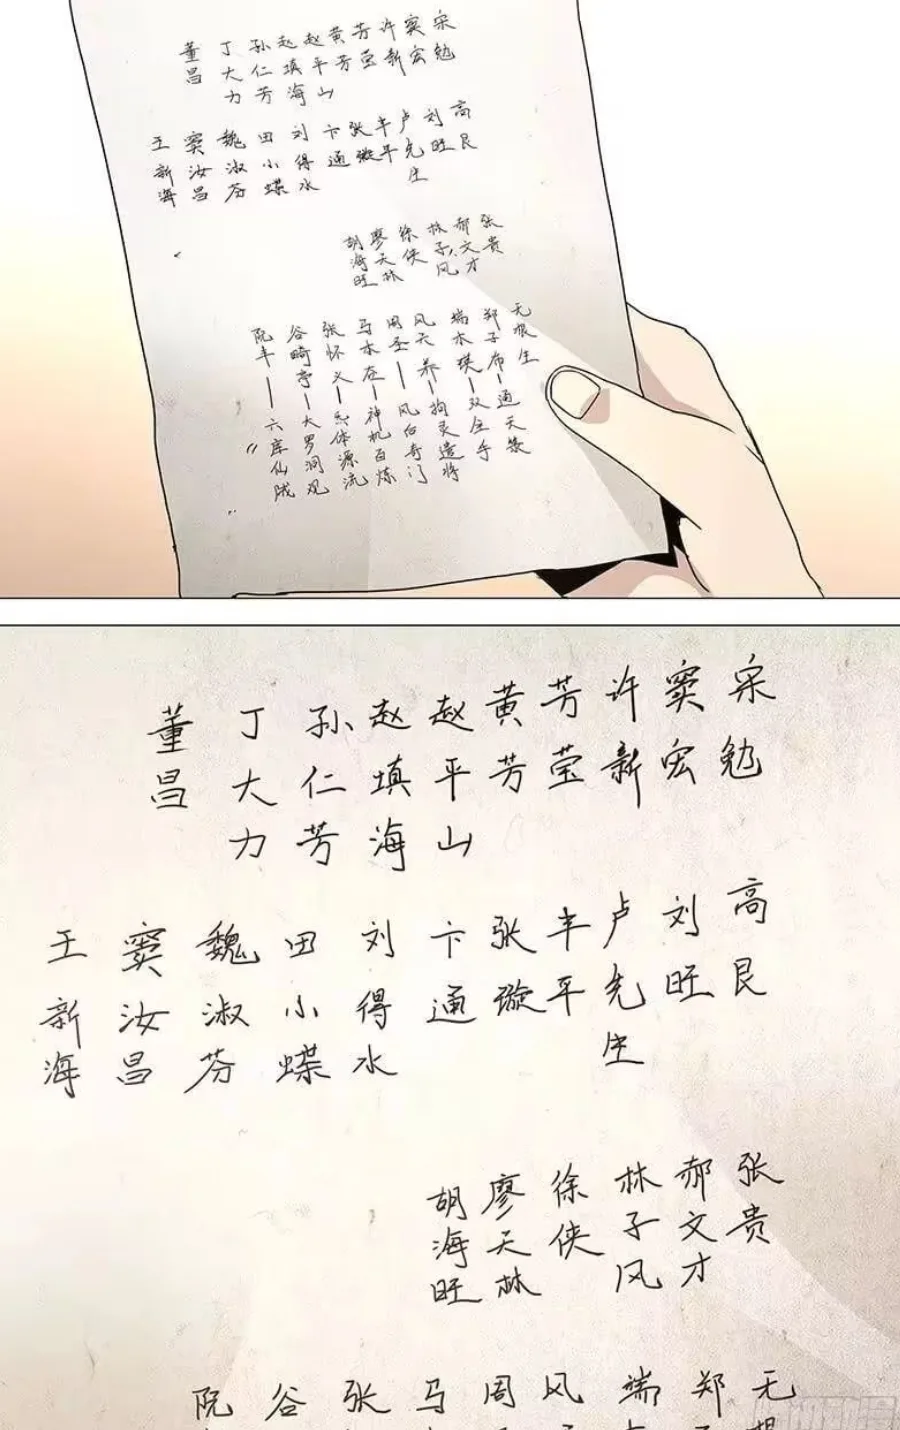 宋勉
窦宏
许新
芳莹
黄芳
赵平山
赵填海
孙仁芳
丁大力
董昌
高艮
刘旺
卢先生
丰平
张璇
卞通
刘得水
田小蝶
魏淑芬
窦汝昌
王新海
张贵
郝文才
林子风
徐侠
廖天林
胡海旺
无根生
郑子布—通天箓
端木瑛—双全手
风天养—拘灵遣将
周圣—风后奇门
马本在—神机百炼
张怀义—炁体源流
谷畸亭—大罗洞观
阮丰——六库仙贼
宋勉
窦宏
许新
芳莹
黄芳
赵平山
赵填海
孙仁芳
丁大力
董昌
高艮
刘旺
卢先生
丰平
张璇
卞通
刘得水
田小蝶
魏淑芬
窦汝昌
王新海
张贵
郝文才
林子风
徐侠
廖天林
胡海旺
无
郑
端
风
周
马
张
谷
阮